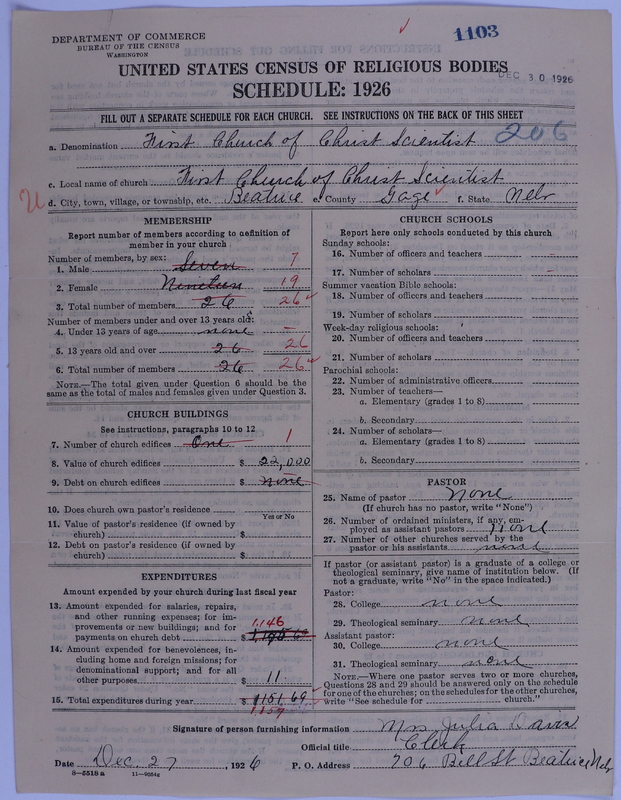 DEPARTMENT OF COMMERCE
BUREAU OF THE CENSUS
WASHINGTON
1103
UNITED STATES CENSUS OF RELIGIOUS BODIES
DEC 30 1926
SCHEDULE: 1926
FILL OUT A SEPARATE SCHEDULE FOR EACH CHURCH. SEE INSTRUCTIONS ON THE BACK OF THIS SHEET
a. Denomination First Church of Christ Scientist 206
c. Local name of church First Church of Christ Scientist
d. City, town, village, or township, etc. Beatrice e. County Gage f. State Nebr
MEMBERSHIP
Report number of members according to definition of
member in your church
Number of members, by sex:
1. Male Seven 7
2. Female Nineteen 19
3. Total number of members 26 26
Number of members under and over 13 years old:
4. Under 13 years of age none –
5. 13 years old and over 26 26
6. Total number of members 26 26
NOTE.—The total given under Question 6 should be the
same as the total of males and females given under Question 3.
CHURCH BUILDINGS
See instructions, paragraphs 10 to 12
7. Number of church edifices One 1
8. Value of church edifices $ 22,000
9. Debt on church edifices $ none
10. Does church own pastor's residence
Yes or No
11. Value of pastor's residence (if owned by
church) $
12. Debt on pastor's residence (if owned by
church) $
EXPENDITURES
Amount expended by your church during last fiscal year
13. Amount expended for salaries, repairs,
and other running expenses; for im-
provements or new buildings; and for 1,146
payments on church debt $
14. Amount expended for benevolences, in-
cluding home and foreign missions; for
denominational support; and for all
other purposes $ 11
15. Total expenditures during year $ 1151.69
1,157
CHURCH SCHOOLS
Report here only schools conducted by this church
Sunday schools:
16. Number of officers and teachers –
17. Number of scholars –
Summer vacation Bible schools:
18. Number of officers and teachers
19. Number of scholars
Week-day religious schools:
20. Number of officers and teachers
21. Number of scholars
Parochial schools:
22. Number of administrative officers
23. Number of teachers—
a. Elementary (grades 1 to 8)
b. Secondary
24. Number of scholars—
a. Elementary (grades 1 to 8)
b. Secondary
PASTOR
25. Name of pastor None
(If church has no pastor, write "None")
26. Number of ordained ministers, if any, em-
ployed as assistant pastors None
27. Number of other churches served by the
pastor or his assistants none
If pastor (or assistant pastor) is a graduate of a college or
theological seminary, give name of institution below. (If
not a graduate, write "No" in the space indicated.)
Pastor:
28. College none
29. Theological seminary none
Assistant pastor:
30. College none
31. Theological seminary none
NOTE.—Where one pastor serves two or more churches,
Questions 28 and 29 should be answered only on the schedule
for one of the churches; on the schedules for the other churches,
write "See schedule for church."
Signature of person furnishing information Mrs Julia Davis
Official title Clerk
Date Dec. 27, 1926 P. O. Address 706 Bell St Beatrice Nebr
8—5518 a 11—9054